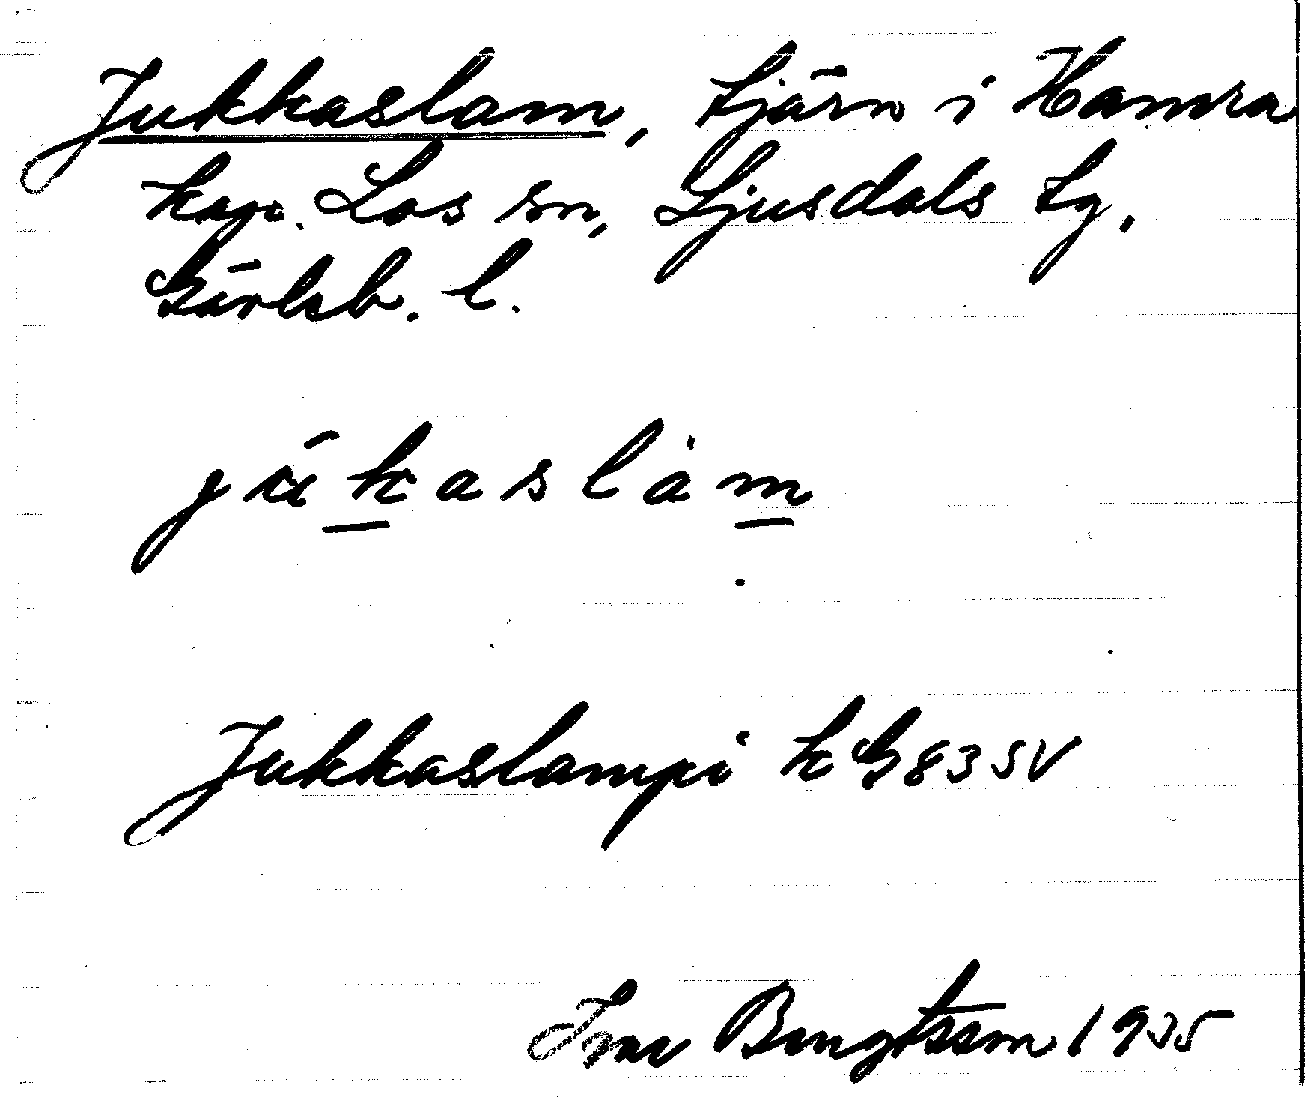 Jukkaslam, tjärn i Hamra
kap. Los sn, Ljusdals tg,
Gävleb. l.
jukaslam
Jukkaslampi k G 83 SV
Ivar Bengtsson 1935